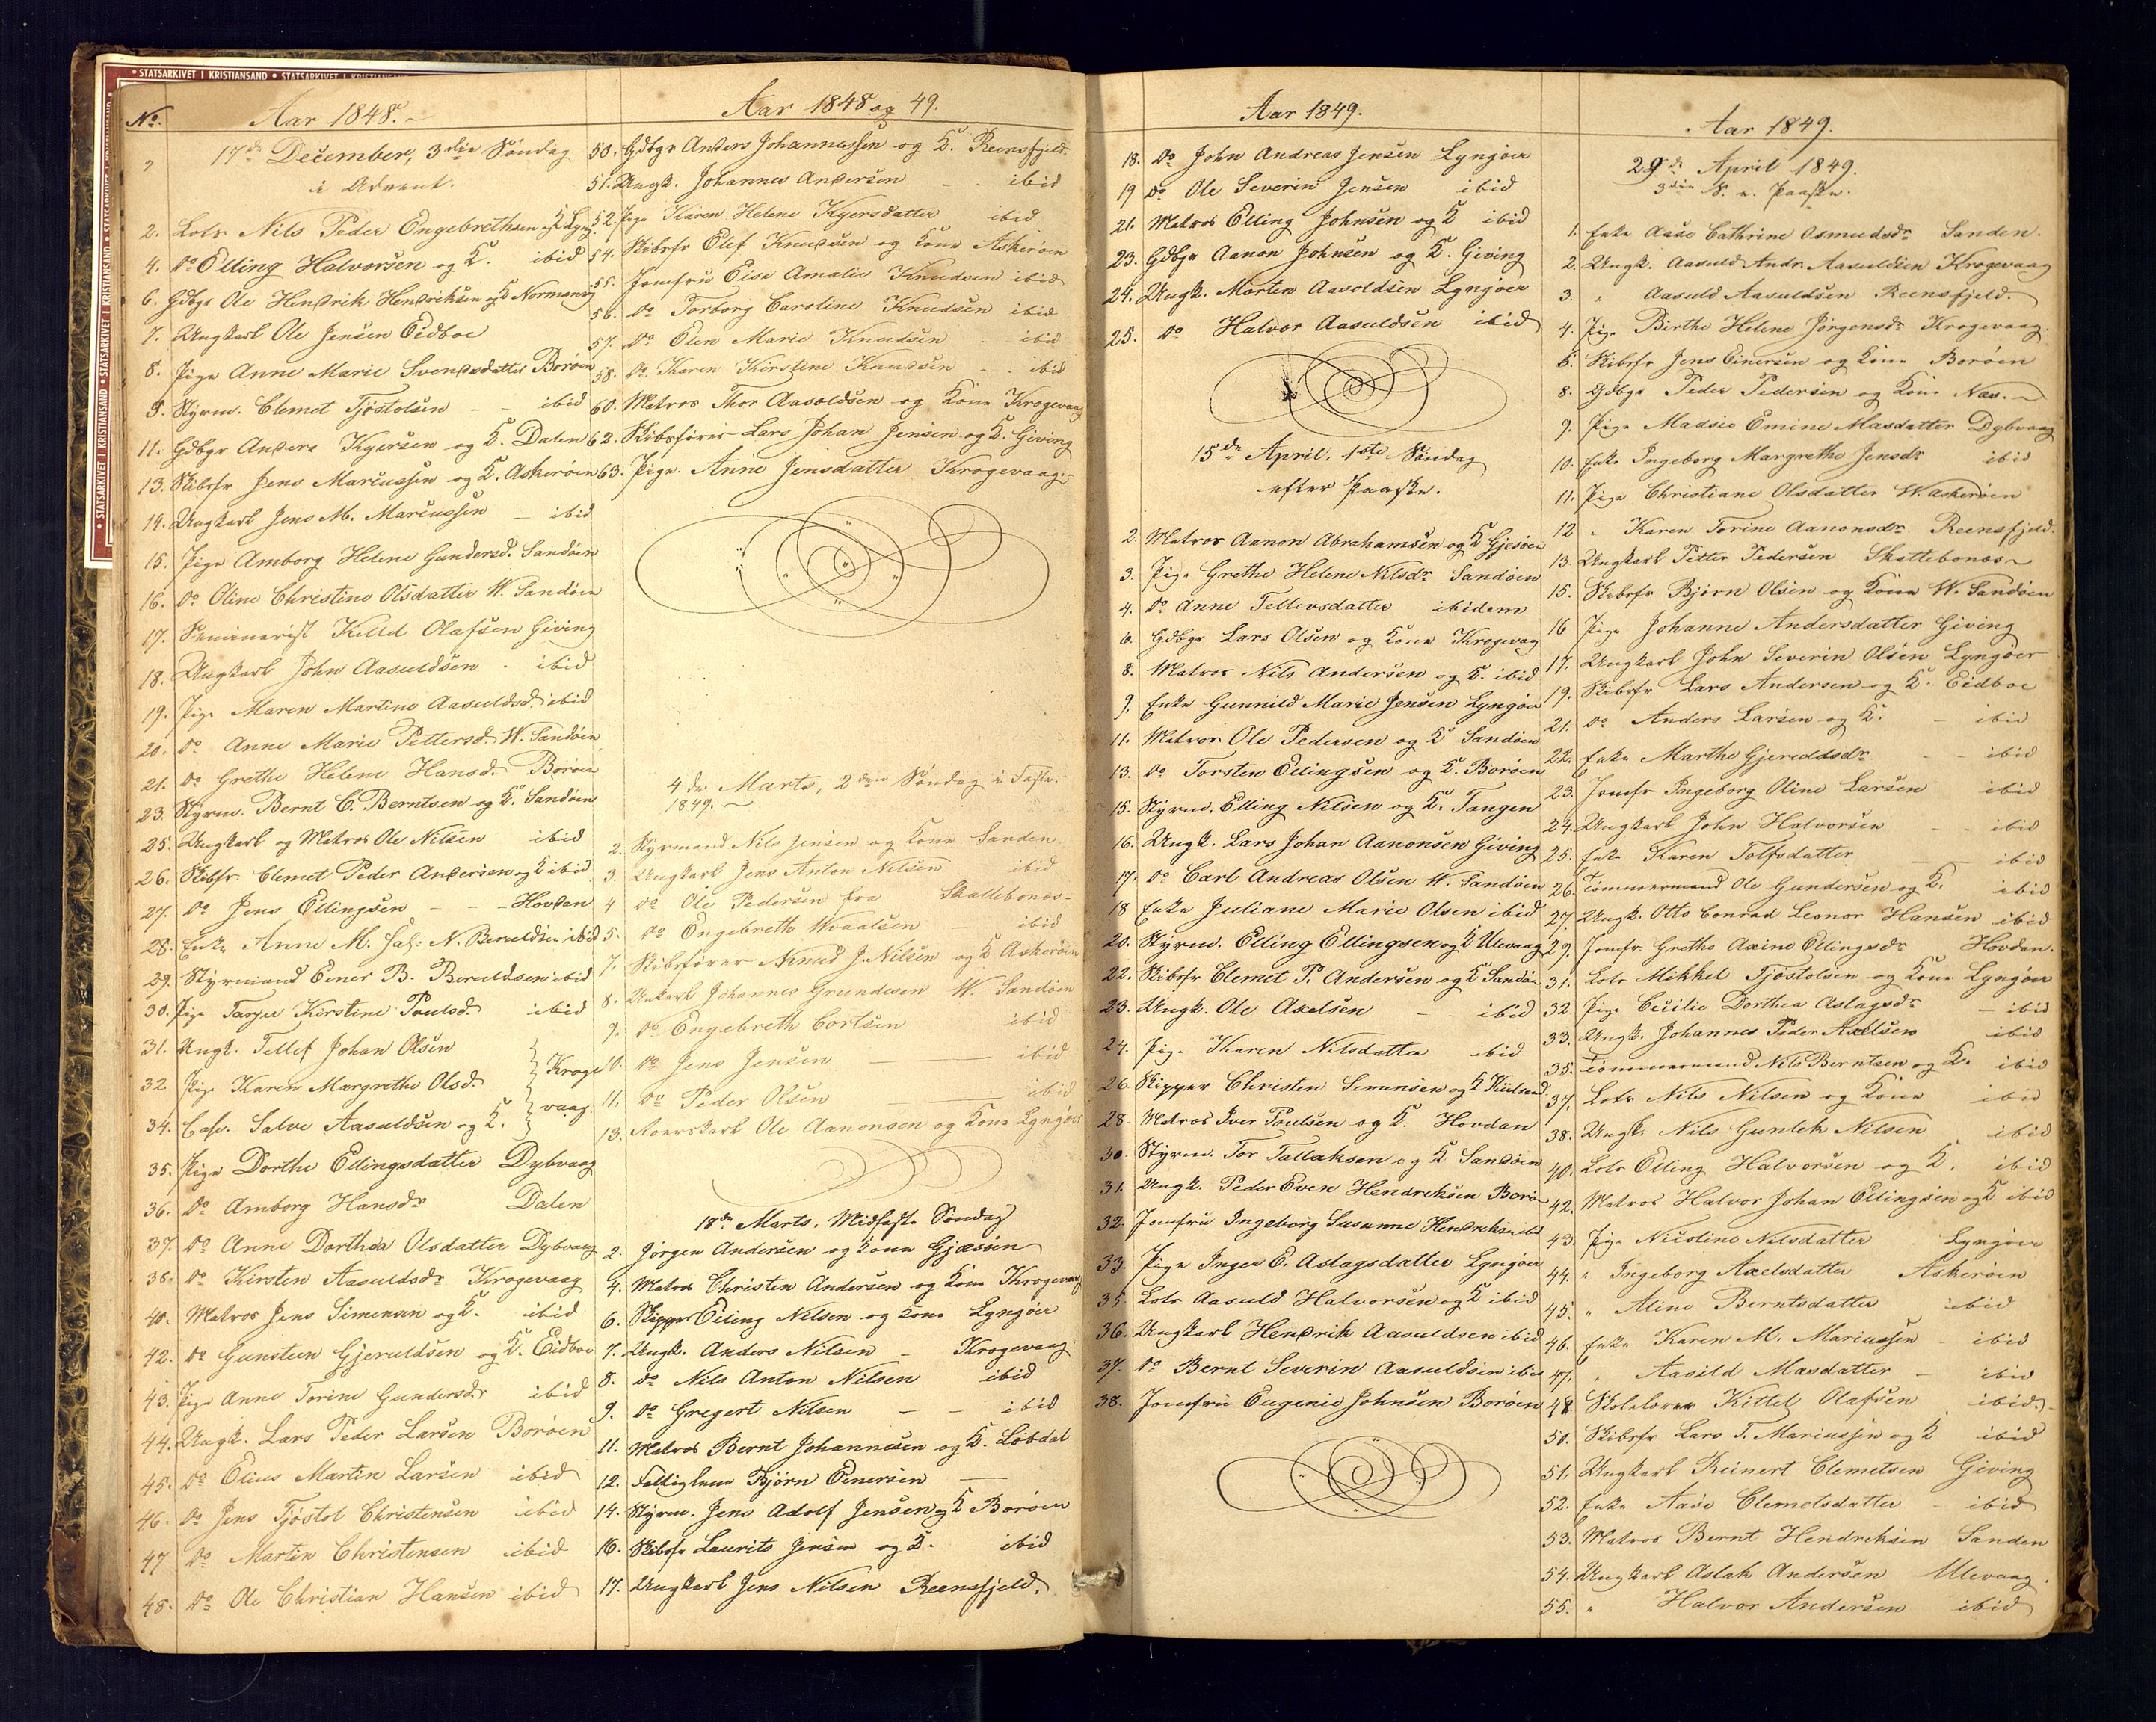 STATSARKIVET I KRISTIANSAND • STATSARKIVET I KRISTIANSAND
No.
Aar 1848.
17de December, 3die Söndag
i Advent.
2. Lods Nils Peder Engebrethsen og K. Lyng
4. Do Elling Halvorsen og K. ibid
6. Gdbgr Ole Hendrik Hendriksen og K Normansv
7. Ungkarl Ole Jensen Eidboe
8. Pige Anne Marie Svendsdatter Boröen
9. Styrm. Clemet Tjöstolsen - - ibid
11. Gdbgr Anders Kyersen og K. Dalen
13. Skibsfr Jens Marcussen og K. Askeröen
14. Ungkarl Jens M. Marcussen - ibid
15. Pige Amborg Helene Gundersd. Sandöen
16. Do Oline Christine Olsdatter W. Sandöen
17. Seminarist Kittil Olafsen Giving
18. Ungkarl John Aasuldsen - ibid
19. Pige Maren Martine Aasuldsd. ibid
20. Do Anne Marie Pettersd. W. Sandöen
21. Do Grethe Helene Hansd. Boröen
23. Styrm. Bernt C. Berntsen og K. Sandöen
25. Ungkarl og Matros Ole Nilsen ibid
26. Skibsfr. Clemet Peder Andersen og K ibid
27. Do Jens Ellingsen - - - Hovdan
28. Enke Anne M. Sal: N. Beruldsen ibid
29. Styrmand Einer B. Beruldsen ibid
30. Pige Tarjer Kirstine Poulsd. ibid
31. Ungk. Tellef Johan Olsen
32. Pige Karen Margrethe Olsd. } Kroge
34. Cap. Salve Aasuldsen og K. } vaag.
35. Pige Dorthe Ellingsdatter Dybvaag
36. Do Amborg Hansdr Dalen
37. Do Anne Dorthea Olsdatter Dybvaag
38. Do Kirsten Aasuldsdr Krogevaag
40. Matros Jens Simensen og K. ibid
42. Do Gunsteen Gjeruldsen og K. Eidboe
43. Pige Anne Torine Gundersdr ibid
44. Ungk. Lars Peder Larsen Boröen
45. Do Elius Martin Larsen ibid
46. Do Jens Tjöstol Christensen ibid
47 Do Martin Christensen ibid
48. Do Ole Christian Hansen ibid
Aar 1848 og 49.
50. Gdbgr Anders Johannessen og K. Reensfjeld.
51. Ungk. Johannes Andersen - - ibid
52. Pige Karen Helene Kyersdatter ibid
54. Skibsfr Elef Knudsen og Kone Askeröen
55. Jomfru Elise Amalie Knudsen ibid
56. Do Torborg Caroline Knudsen ibid
57. Do Elen Marie Knudsen - ibid
58. Do Karen Kirstine Knudsen - - ibid
60. Matros Thor Aasoldsen og Kone Krogevaag
62. Skibsförer Lars Johan Jensen og K. Giving
63. Pige. Anne Jensdatter Krogevaag
4de Marts, 2den Söndag i Faste.
1849.
2. Styrmand Nils Jensen og Kone Sanden
3. Ungkarl Jens Anton Nilsen ibid
4 Do Ole Pedersen fra Skattebonæs
5. Do Engebreth Hvaalsen - ibid
7. Skibsförer Knud J. Nilsen og K Askeröen
8. Unkarl Johannes Grundesen W. Sandöen
9. Do Engebreth Cortsen ibid
10. Do Jens Jensen ibid
11. Do Peder Olsen ibid
13. Roerskarl Ole Aanonsen og Kone Lyngöer
18de Marts. Midfaste Söndag
2. Jörgen Andersen og Kone Gjæsöen
4. Matros Christen Andersen og Kone Krogevaag
6. Skipper Elling Nilsen og Kone Lyngöer
7. Ungk. Anders Nilsen - Krogevaag
8. do Nils Anton Nilsen ibid
9. Do Gregert Nilsen - - ibid
11. Matros Bernt Johannesen og K. Löbdal
12. Fattiglem Björn Einersen
14. Styrm. Jens Adolf Jensen og K Boröen
16. Skibsfr Laurits Jensen og K. ibid
17. Ungkarl Jens Nilsen Reensfjeld.
Aar 1849.
18. Do John Andreas Jensen Lyngöer
19 do Ole Severin Jensen ibid
21. Matros Elling Johnsen og K ibid
23. Gdbgr Aanon Johnsen og K. Giving
24. Ungk. Morten Aasoldsen Lyngöer
25. Do Halvor Aasuldsen ibid
15de April, 1ste Söndag
efter Paaske.
2. Matros Aanon Abrahamsen og K Gjesöen
3. Pige Grethe Helene Nilsdr Sandöen
4. Do Anne Tellevsdatter ibidem
6. Gdbgr Lars Olsen og Kone Krogevag
8. Matros Nils Andersen og K. ibid
9. Enke Gunnild Marie Jensen Lyngöer
11. Matros Ole Pedersen og K Sandöen
13. Do Torsten Ellingsen og K. Boröen
15. Styrm. Elling Nilsen og K. Tangen
16. Ungk. Lars Johan Aanonsen Giving
17. Do Carl Andreas Olsen W. Sandöen
18 Enke Juliane Marie Olsen ibid
20. Styrm. Elling Ellingsen og K Ulevaag
22. Skibsfr Clemet P. Andersen og K Sandöen
23. Ungk. Ole Axelsen - - ibid
24. Pige Karen Nilsdatter ibid
26. Skipper Christen Simensen og K Kiilsund
28. Matros Iver Poulsen og K. Hovdan
30. Styrm. Tor Tallaksen og K Sandöen
31. Ungk. Peder Even Hendriksen Borö
32. Jomfru Ingeborg Susanne Hendriks ibid
33. Pige Inger E. Aslagsdatter Lyngöer
35. Lods Aasuld Halvorsen og K ibid
36. Ungkarl Hendrik Aasuldsen ibid
37. Do Bernt Severin Aasuldsen ibid
38. Jomfru Eugenie Johnsen Boröen
Aar 1849.
29de April 1849.
3die S. e. Paaske.
1. Enke Aase Cathrine Osmudsdr Sanden.
2. Ungk. Aasuld Andr. Aasuldsen Krogevaag
3. " Aasuld Aasuldsen Reensfjeld.
4. Pige Birthe Helene Jörgensdr Krogevaag
6. Skibsfr Jens Einersen og Kone Boröen
8. Gdbgr Peder Pedersen og Kone Næs.
9. Pige Madsie Emine Masdatter Dybvaag
10. Enke Ingeborg Margrethe Jensdr ibid
11. Pige Christiane Olsdatter W. Askeröen
12 " Karen Torine Aanonsdr Reensfjeld.
13. Ungkarl Petter Pedersen Skattebonæs
15. Skibsfr Björn Olsen og Kone W. Sandöen
16 Pige Johanne Andersdatter Giving
17. Ungkarl John Severin Olsen Lyngöer
19. Skibsfr Lars Andersen og K. Eidboe
21. Do Anders Larsen og K. - ibid
22. Enke Marthe Gjeruldsdr - - ibid
23. Jomfr Ingeborg Oline Larsen ibid
24. Ungkarl John Halvorsen - - ibid
25. Enke Karen Tolfsdatter ibid
26. Tömmermand Ole Gundersen og K. ibid
27. Ungk. Otto Conrad Leonor Hansen ibid
29. Jomfr. Grethe Axine Ellingsdr Hovdan.
31. Lods Mikkel Tjöstolsen og Kone Lyngöer
32. Pige Cecilie Dorthea Aslagsdr - ibid
33. Ungk. Johannes Peder Axelsen ibid
35. Tömmermand Nils Berntsen og K. ibid
37. Lods Nils Nilsen og Kone ibid
38. Ungk. Nils Gunlek Nilsen ibid
40. Lods Elling Halvorsen og K. ibid
42. Matros Halvor Johan Ellingsen og K ibid
43. Pige Nicoline Nilsdatter Lyngöer
44. " Ingeborg Axelsdatter Askeröen
45. " Aline Berntsdatter ibid
46. Enke Karen M. Mariussen - ibid
47. " Aasild Masdatter - ibid
48. Skolelærer Kittel Olafsen ibid.
50. Skibsfr Lars T. Mariussen og K ibid
51. Ungkarl Reinert Clemetsen Giving
52. Enke Aase Clemetsdatter - ibid
53. Matros Bernt Hendriksen Sanden
54. Ungkarl Aslak Andersen Ulevaag.
55. " Halvor Andersen ibid